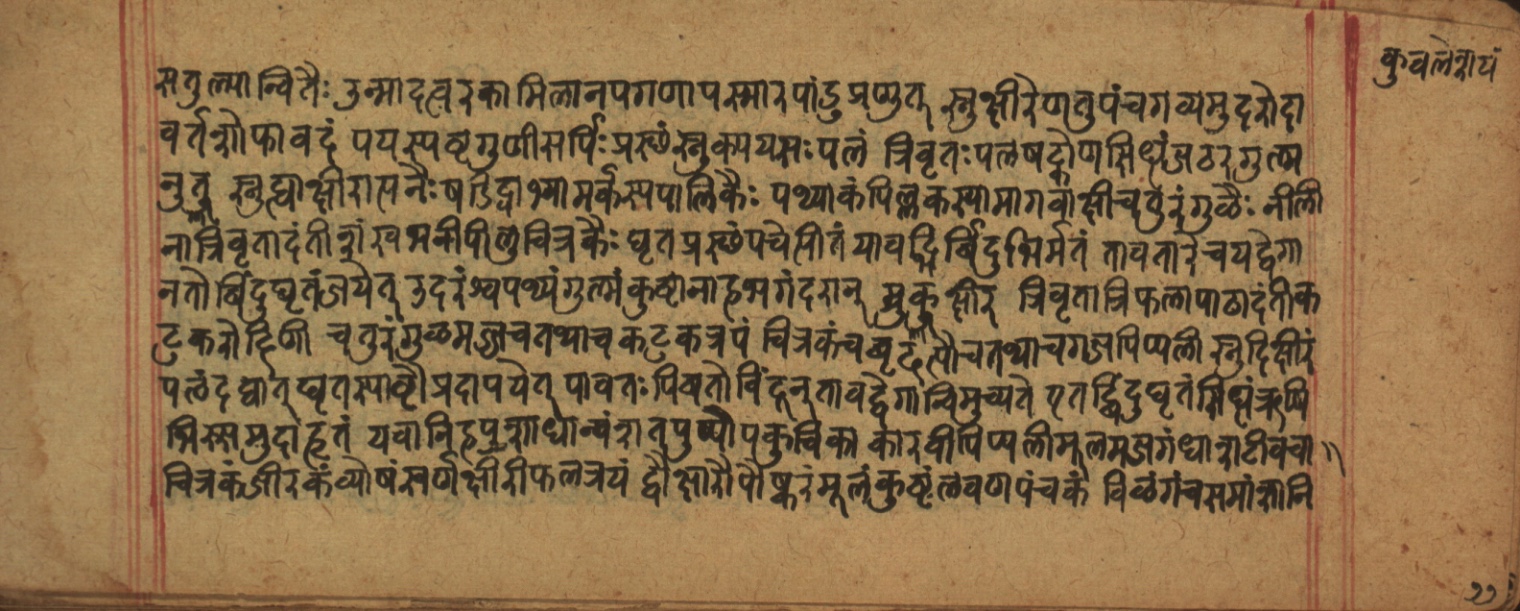 कुवलेशयं
सतुल्यान्वितैः उन्मादज्वरकामिलानपगणापस्मारपांडुप्रणुत् स्नुक्षीरेणतुपंचगव्यमुदरोदा
वर्तशोफावदं पयस्यष्टगुणीसर्पिःप्रस्छंस्नुक्पयसःपलं त्रिवृतःपलषद्रोणसिध्धंजठरगुल्म
नुत् स्नुह्याक्षीरासनैःषड्विद्वा पालिकैः पथ्याकंपिल्लकस्यामागवाक्षीचतुरंगुळैः नीली
नात्रिवृतादंतीशंखभकीपीलुचित्रकैः घृतप्रस्छंपचेत्पीतं यावद्भिर्बिंदुभिर्मतं तावतारेचयद्वेगा
नतोबिंदुघृतंजयेत् उदरं गुल्मंकुष्टानाहभगंदरान् स्नुक् क्षीर त्रिवृतात्रिफलापाठादंतीक
टुकरोहिणी चतुरंगुळमज्जाचतथाचकटुकत्रपं चित्रकंच चतथाचगजपिप्पली स्नुहिक्षीरं
पलंदद्यात् घृतस्याष्टौप्रदापयेत् यावतःपिबतोबिंदून्तावद्वेगान्विमुच्यते एतद्बिंदुघृतंसिध्धंऋषि
भिस्समुदाहृतं यवानिहपुषाधान्यंशतपुष्पोपकुंचिका कारवीपिप्पलीमूलमजगंधाशटीवचा॥
चित्रकंजीरकंव्योषंस्वर्णक्षीरीफलत्रयं द्वौक्षारौपौष्करंमूलंकुष्टंलवणपंचकं विळंगंचसमांशानि
२२